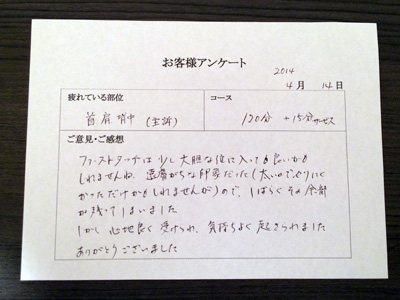 お客様アンケート
2014
4月 14日
疲れている部位
コース
首肩背中（主訴）
120分 +15分サービス
ご意見・ご感想
ファーストタッチは少し大胆な位に入っても良いかも
しれませんね 遠慮がちな印象だった（大いのでくりにく
かっただけかもしれませんが）ので、しばらくその余韻
が残ってしまいました
しかし 心地良く 受けられ、気持ちよく 起きられました
ありがとうございました